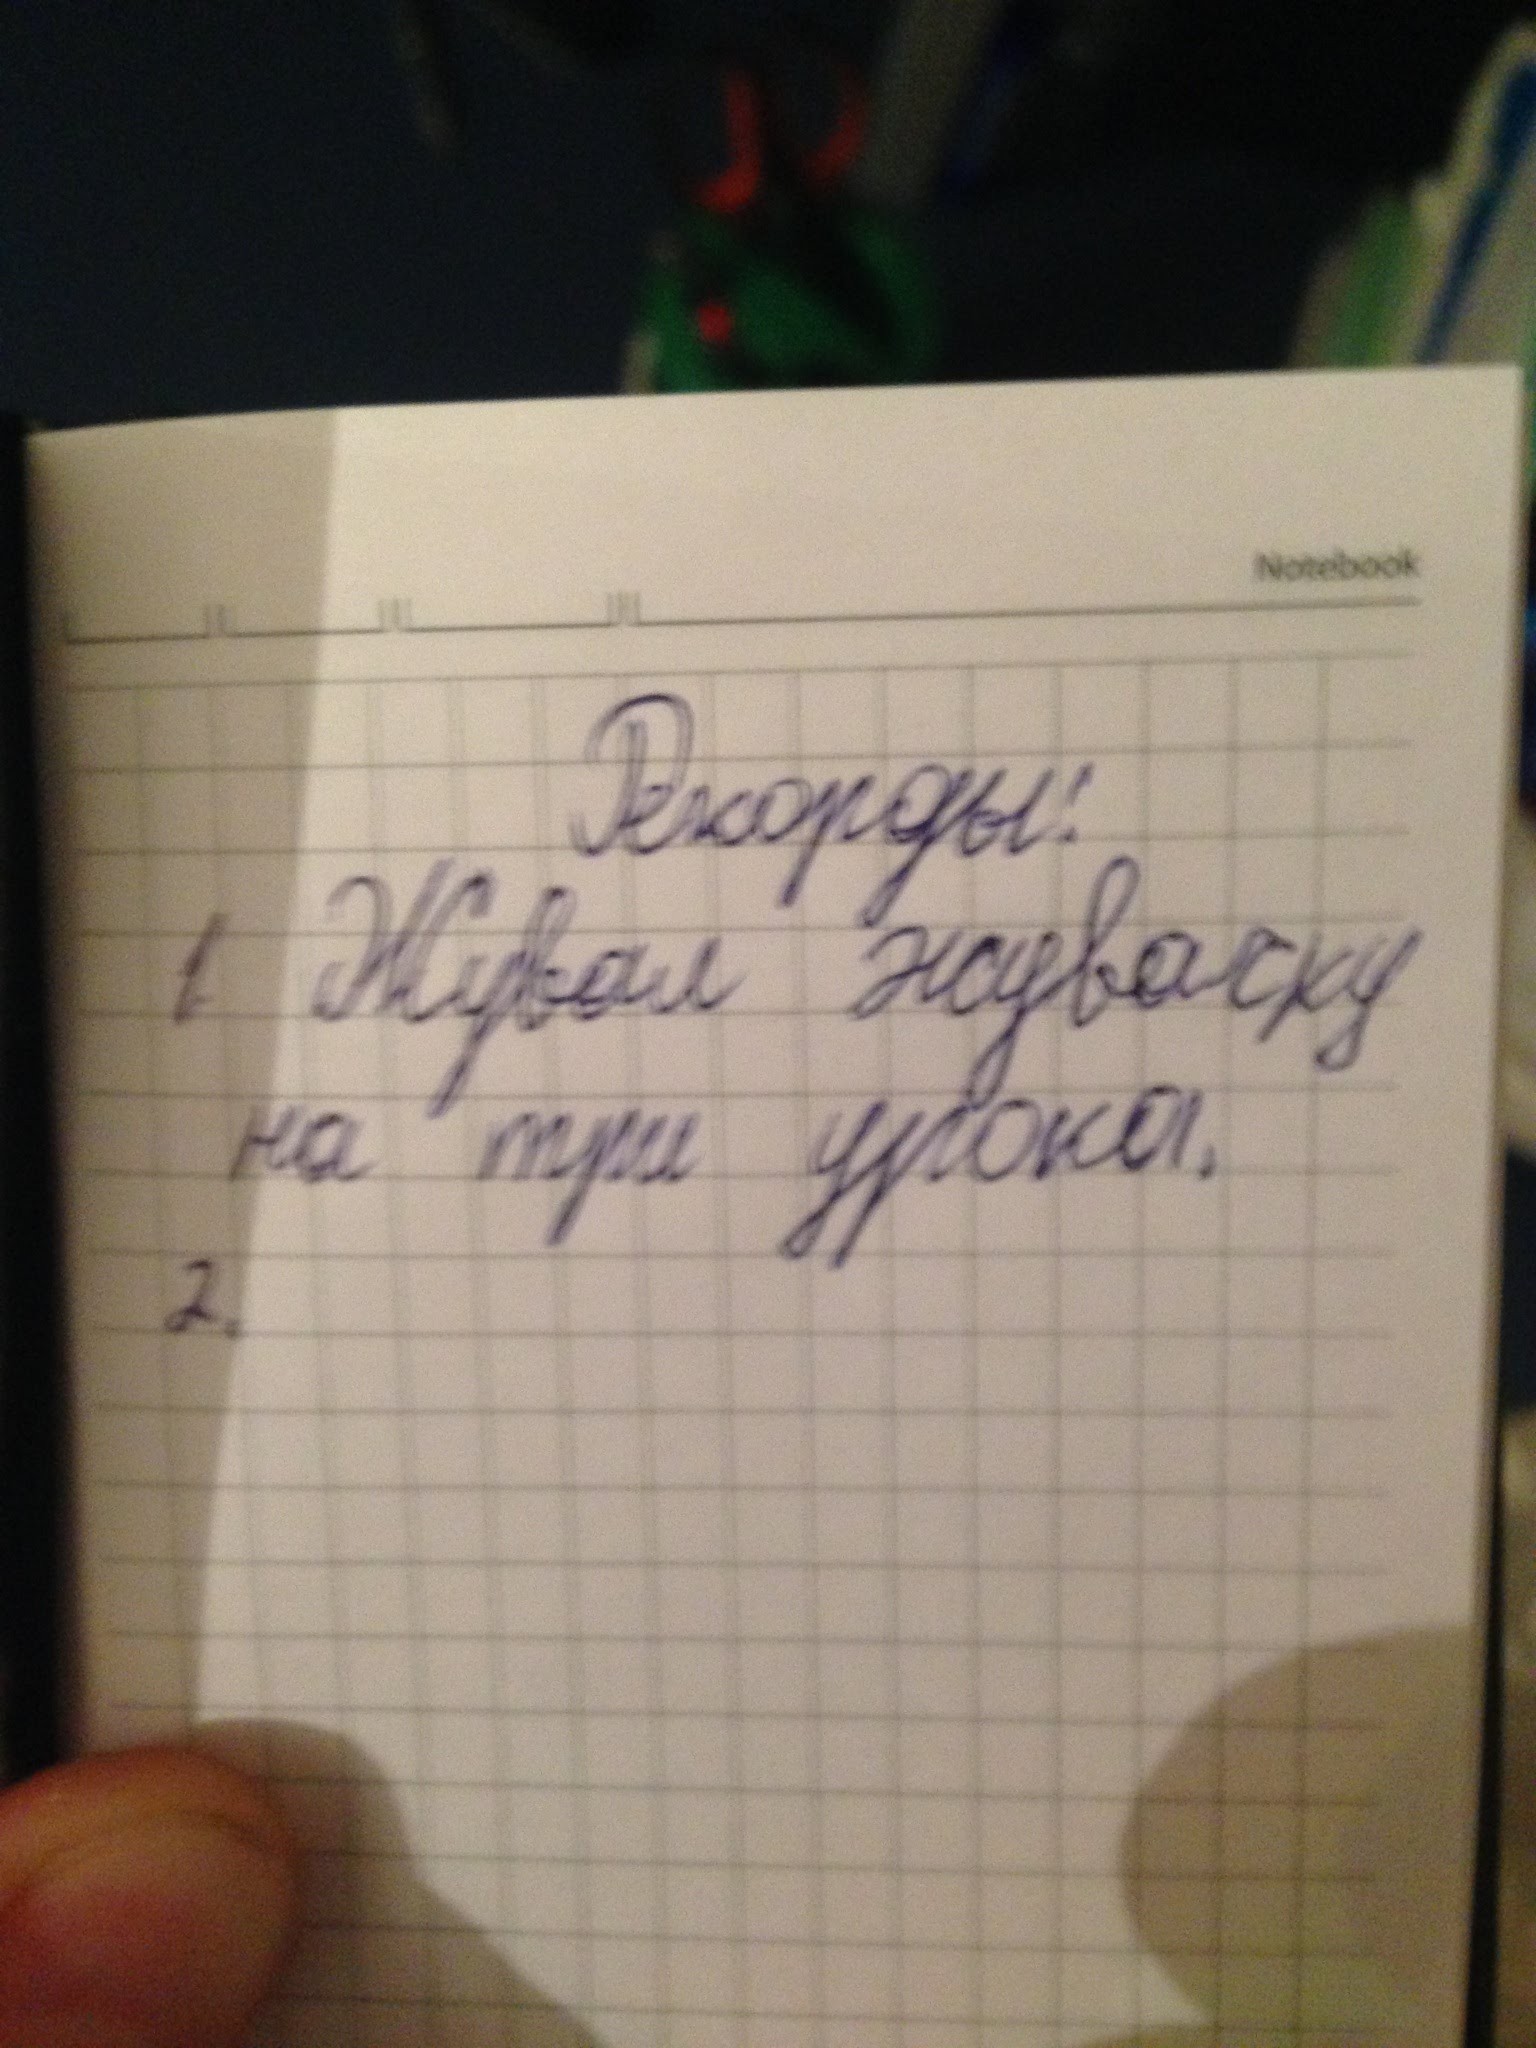 Notebook
Рекорды!
1. Жувал жувачку
на три урока.
2.